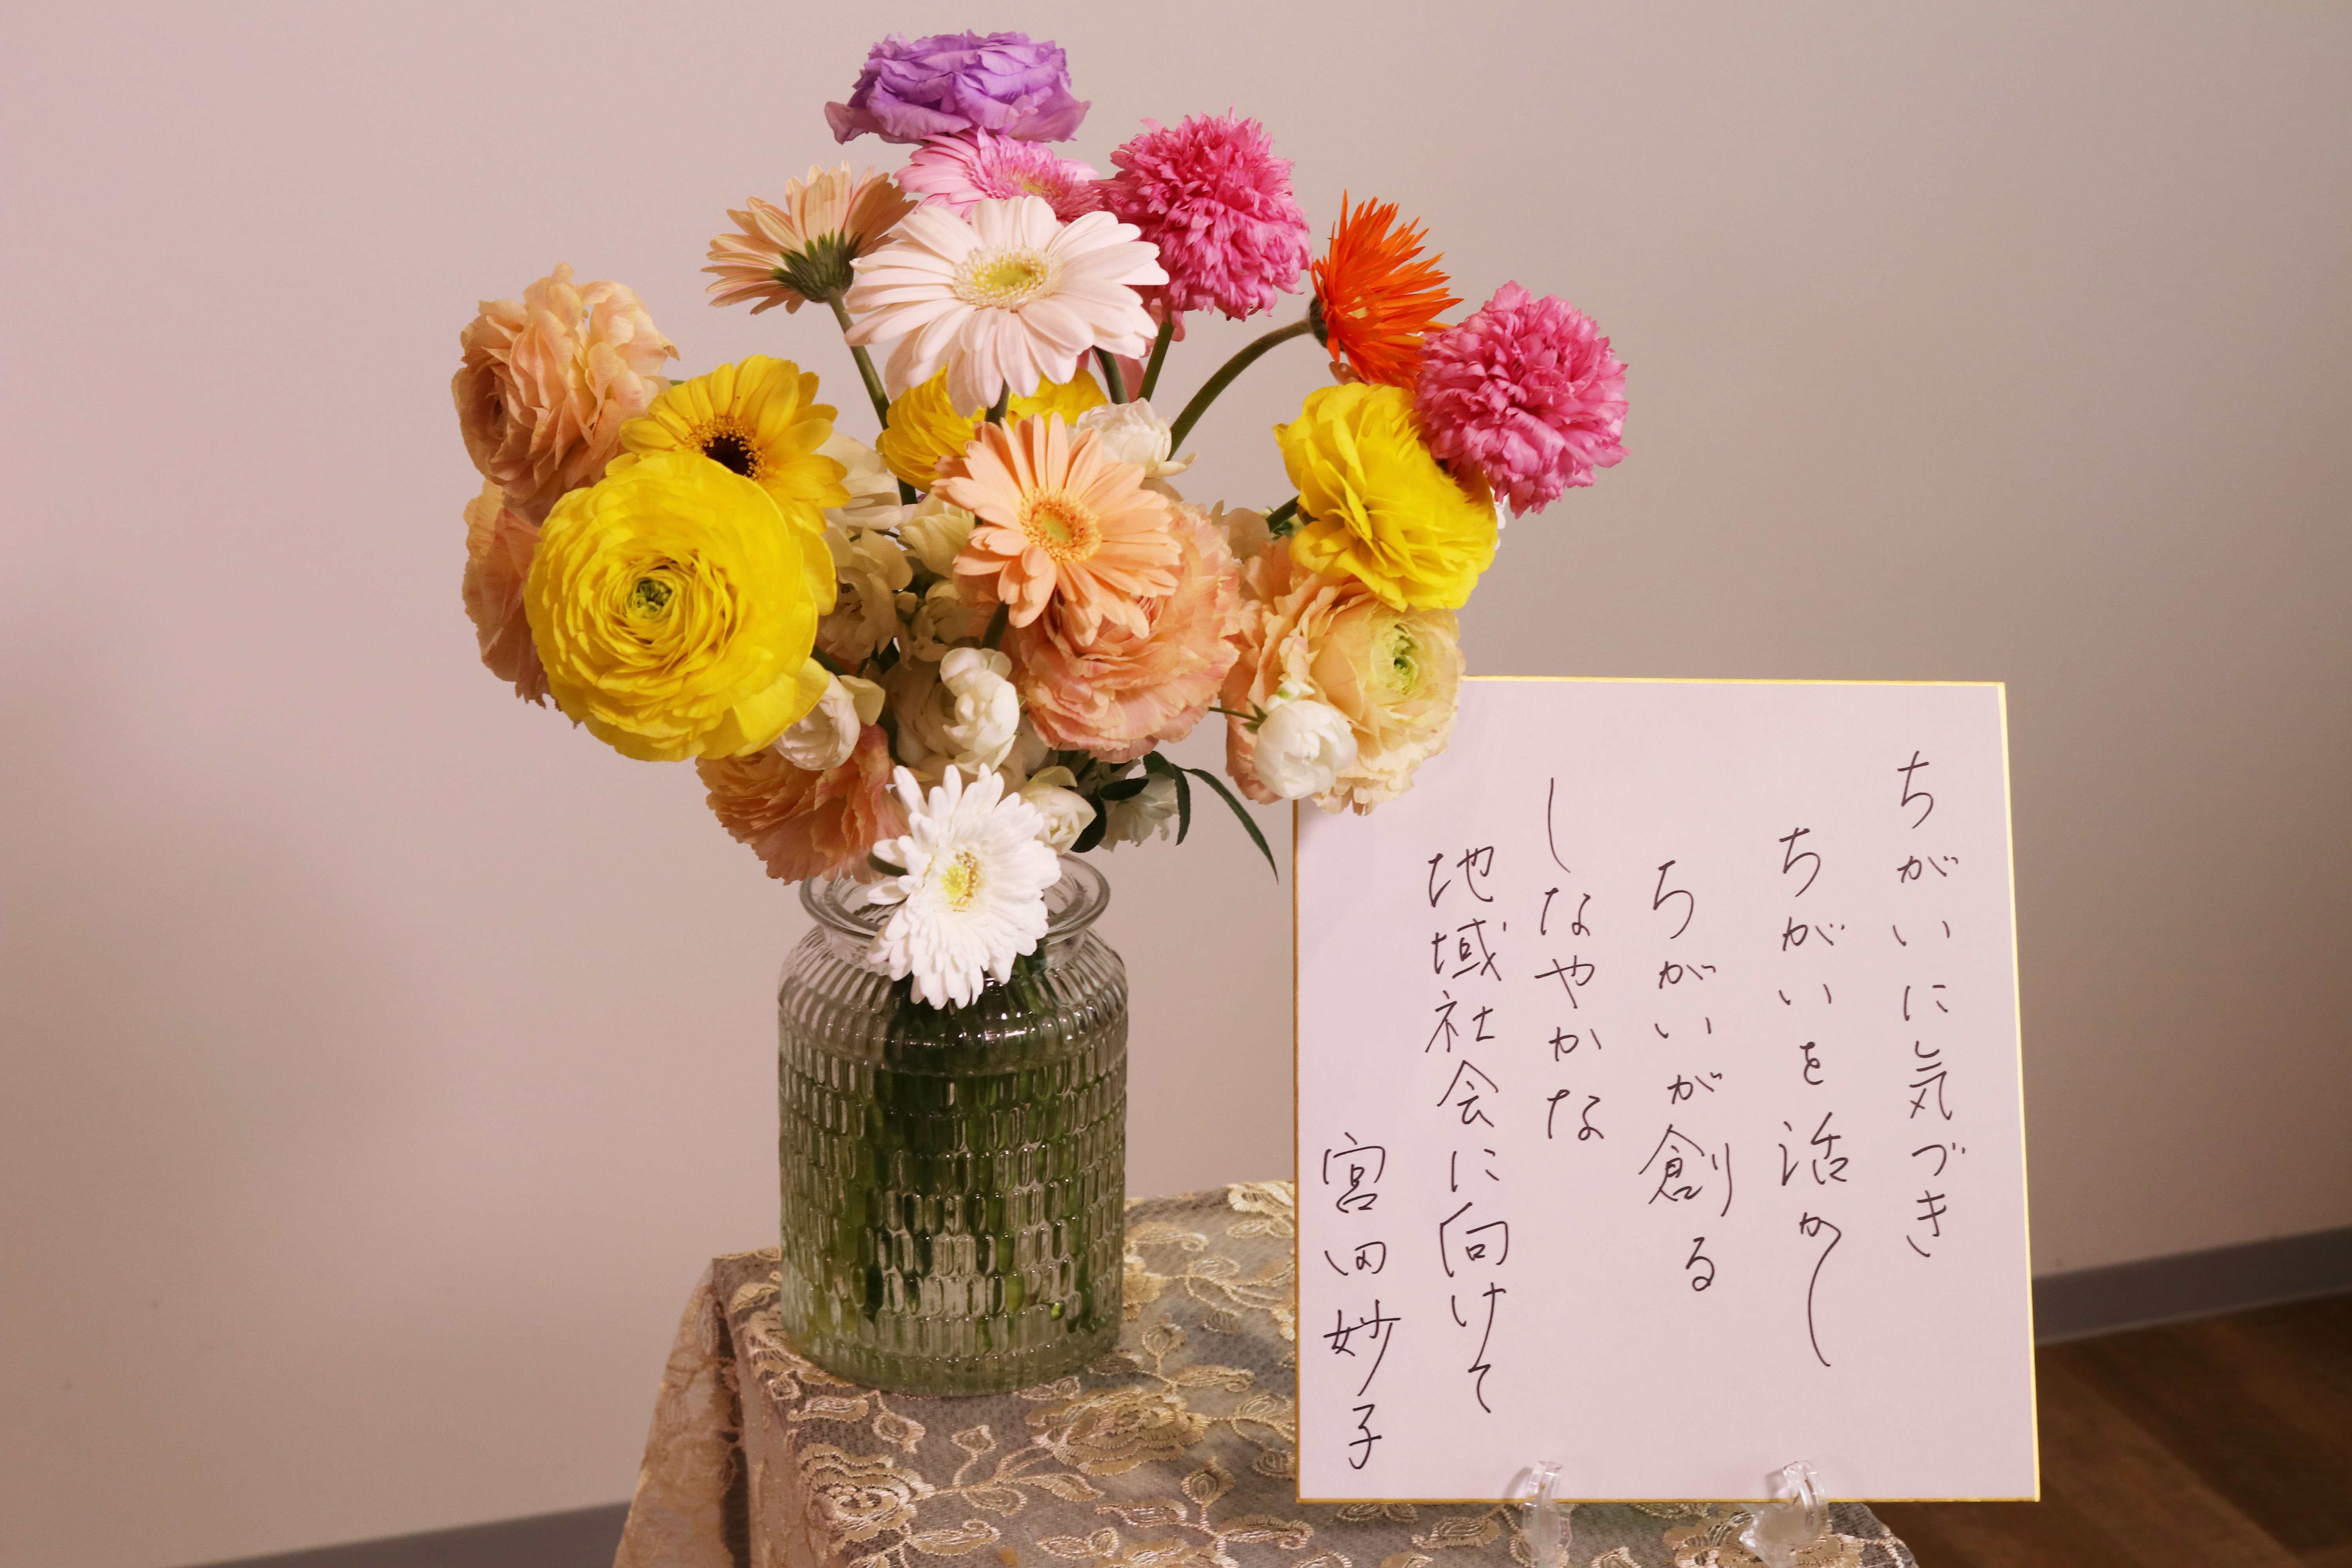 ちがいに気づき
ちがいを活かし
ちがいが創る
しなやかな
地域社会に向けて
宮田妙子